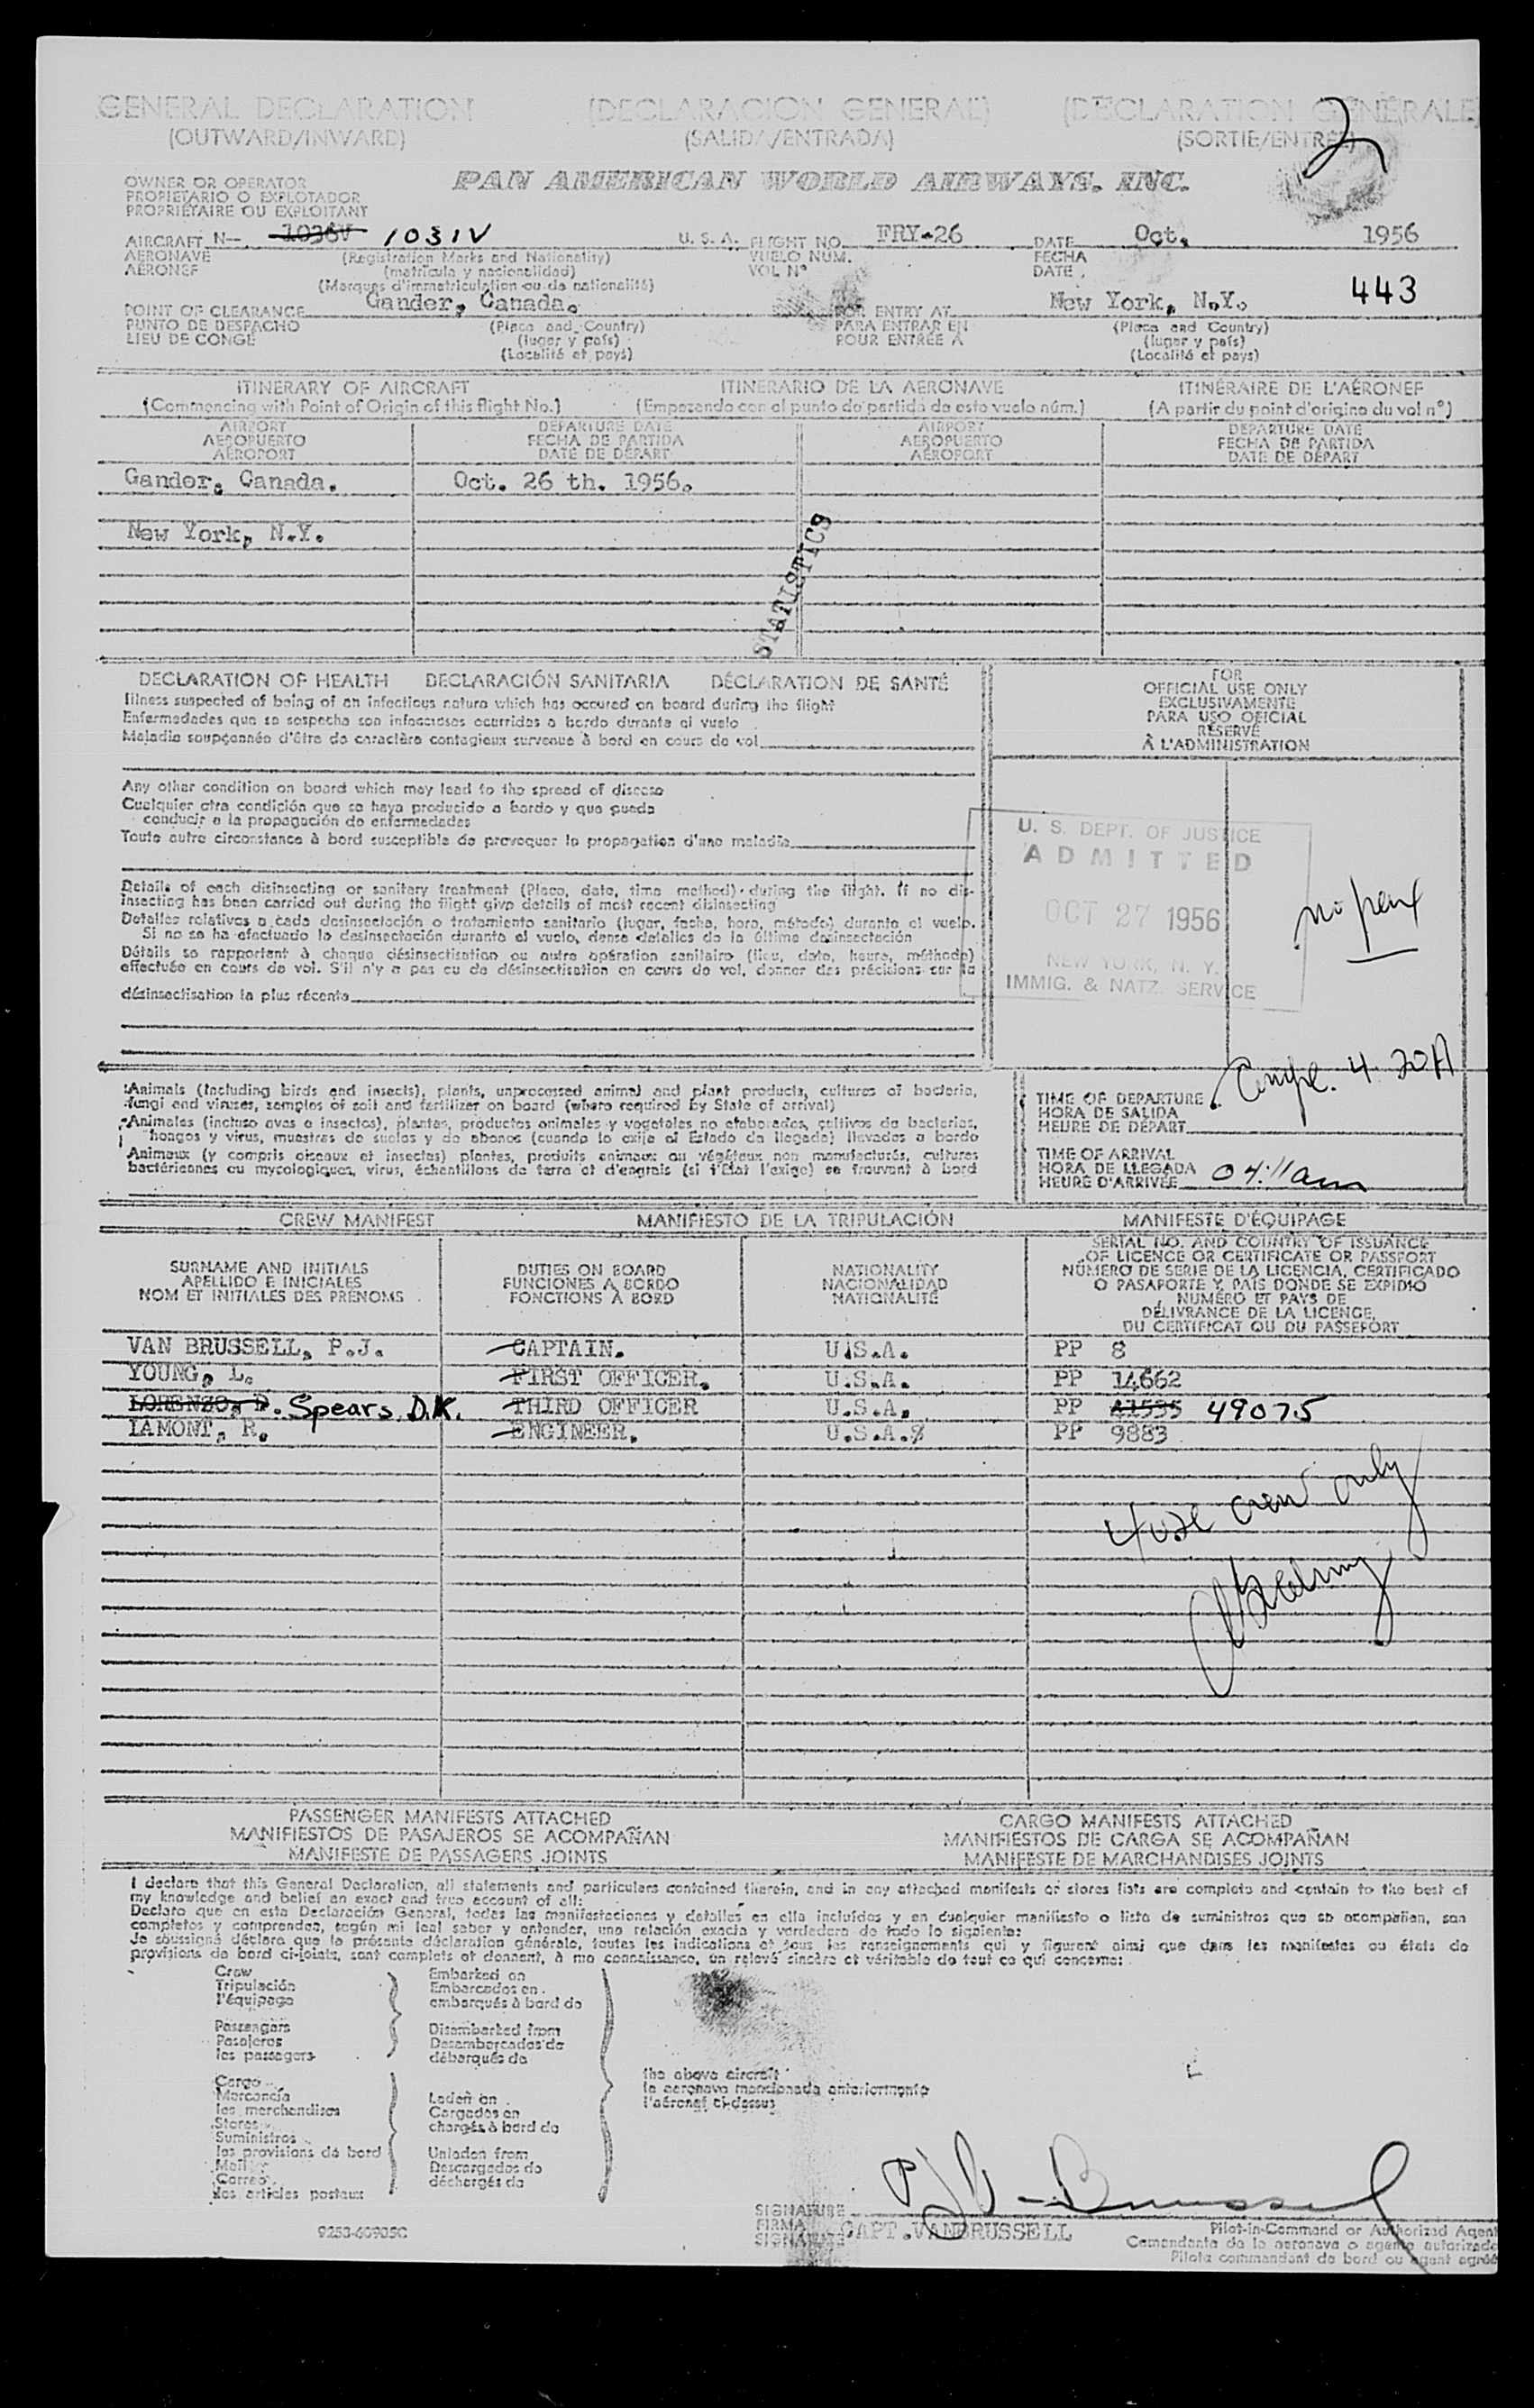 GENERAL DECLARATION (DECLARACION GENERAL) (DÉCLARATION GÉNÉRALE)
(OUTWARD/INWARD) (SALIDA/ENTRADA) (SORTIE/ENTRÉE)
2
OWNER OR OPERATOR
PROPIETARIO O EXPLOTADOR
PROPRIÉTAIRE OU EXPLOITANT
PAN AMERICAN WORLD AIRWAYS, INC.
AIRCRAFT N- 1036V 1031V U. S. A. FLIGHT NO. FRY-26 DATE Oct. 1956
AERONAVE (Registration Marks and Nationality) VUELO NUM. FECHA
AÉRONEF (matrícula y nacionalidad) VOL Nº DATE
(Marques d'immatriculation ou de nationalité)
443
POINT OF CLEARANCE Gander, Canada. FOR ENTRY AT New York, N.Y.
PUNTO DE DESPACHO (Place and Country) PARA ENTRAR EN (Place and Country)
LIEU DE CONGÉ (lugar y país) POUR ENTRÉE À (lugar y país)
(Localité et pays) (Localité et pays)
ITINERARY OF AIRCRAFT ITINERARIO DE LA AERONAVE ITINÉRAIRE DE L'AÉRONEF
(Commencing with Point of Origin of this flight No.) (Empezando con el punto de partida de este vuelo núm.) (A partir du point d'origine du vol nº)
AIRPORT DEPARTURE DATE AIRPORT DEPARTURE DATE
AEROPUERTO FECHA DE PARTIDA AEROPUERTO FECHA DE PARTIDA
AÉROPORT DATE DE DÉPART AÉROPORT DATE DE DÉPART
Gander, Canada. Oct. 26 th. 1956.
New York, N.Y.
STATUSTICS
DECLARATION OF HEALTH DECLARACIÓN SANITARIA DÉCLARATION DE SANTÉ
Illness suspected of being of an infectious nature which has occured on board during the flight
Enfermedades que se sospecha son infecciosas ocurridas a bordo durante el vuelo
Maladie soupçonnée d'être de caractère contagieux survenue à bord en cours de vol
Any other condition on board which may lead to the spread of disease
Cualquier otra condición que se haya producido a bordo y que pueda
conducir a la propagación de enfermedades
Toute autre circonstance à bord susceptible de provoquer la propagation d'une maladie
Details of each disinsecting or sanitary treatment (Place, date, time method) during the flight. If no dis-
insecting has been carried out during the flight give details of most recent disinsecting
Detalles relativos a cada desinsectación o tratamiento sanitario (lugar, fecha, hora, método) durante el vuelo.
Si no se ha efectuado la desinsectación durante el vuelo, dense detalles de la última desinsectación
Détails se rapportant à chaque désinsectisation ou autre opération sanitaire (lieu, date, heure, méthode)
effectuée en cours de vol. S'il n'y a pas eu de désinsectisation en cours de vol, donner des précisions sur la
désinsectisation la plus récente
FOR
OFFICIAL USE ONLY
EXCLUSIVAMENTE
PARA USO OFICIAL
RÉSERVÉ
À L'ADMINISTRATION
U. S. DEPT. OF JUSTICE
ADMITTED
OCT 27 1956
NEW YORK, N. Y.
IMMIG. & NATZ. SERVICE
no pax
Compl. 4 20A
Animals (Including birds and insects), plants, unprocessed animal and plant products, cultures of bacteria,
fungi and viruses, samples of soil and fertilizer on board (where required by State of arrival)
Animales (incluso aves e insectos), plantas, productos animales y vegetales no elaborados, cultivos de bacterias,
hongos y virus, muestras de suelos y de abonos (cuando lo exija el Estado de llegada) llevados a bordo
Animaux (y compris oiseaux et insectes) plantes, produits animaux ou végétaux non manufacturés, cultures
bactériennes ou mycologiques, virus, échantillons de terre et d'engrais (si l'État l'exige) se trouvant à bord
TIME OF DEPARTURE
HORA DE SALIDA
HEURE DE DÉPART
TIME OF ARRIVAL
HORA DE LLEGADA
HEURE D'ARRIVÉE 04:11am
CREW MANIFEST MANIFIESTO DE LA TRIPULACIÓN MANIFESTE D'ÉQUIPAGE
SURNAME AND INITIALS
APELLIDO E INICIALES
NOM ET INITIALES DES PRÉNOMS
DUTIES ON BOARD
FUNCIONES A BORDO
FONCTIONS À BORD
NATIONALITY
NACIONALIDAD
NATIONALITÉ
SERIAL NO. AND COUNTRY OF ISSUANCE
OF LICENCE OR CERTIFICATE OR PASSPORT
NÚMERO DE SERIE DE LA LICENCIA, CERTIFICADO
O PASAPORTE Y PAÍS DONDE SE EXPIDIÓ
NUMÉRO ET PAYS DE
DÉLIVRANCE DE LA LICENCE,
DU CERTIFICAT OU DU PASSEPORT
VAN BRUSSELL, P.J. CAPTAIN. U.S.A. PP 8
YOUNG, L. FIRST OFFICER. U.S.A. PP 14662
LORENZO, D. Spears D.K. THIRD OFFICER U.S.A. PP 41535 49075
LAMONT, R. ENGINEER. U.S.A. PP 9883
4 use crew only
PASSENGER MANIFESTS ATTACHED CARGO MANIFESTS ATTACHED
MANIFIESTOS DE PASAJEROS SE ACOMPAÑAN MANIFIESTOS DE CARGA SE ACOMPAÑAN
MANIFESTE DE PASSAGERS JOINTS MANIFESTE DE MARCHANDISES JOINTS
I declare that this General Declaration, all statements and particulars contained therein, and in any attached manifests or stores lists are complete and contain to the best of
my knowledge and belief an exact and true account of all:
Declaro que en esta Declaración General, todas las manifestaciones y detalles en ella incluídos y en cualquier manifiesto o lista de suministros que se acompañan, son
completos y comprenden, según mi leal saber y entender, una relación exacta y verdadera de todo lo siguiente:
Je soussigné déclare que la présente déclaration générale, toutes les indications et tous les renseignements qui y figurent ainsi que dans les manifestes ou états de
provisions de bord ci-joints, sont complets et donnent, à ma connaissance, un relevé sincère et véritable de tout ce qui concerne:
Crew Embarked on
Tripulación Embarcados en
l'équipage embarqués à bord de
Passengers Disembarked from
Pasajeros Desembarcados de
les passagers débarqués de
the above aircraft
la aeronave mencionada anteriormente
l'aéronef ci-dessus
Cargo
Mercancía Laden on
les merchandises Cargados en
Stores chargés à bord de
Suministros
les provisions de bord Unladen from
Mail Descargados de
Correo déchargés de
les articles postaux
P J Van Brussel
SIGNATURE
FIRMA CAPT. VANBRUSSELL
SIGNATURE
Pilot-in-Command or Authorized Agent
Comandante de la aeronave o agente autorizado
Pilote commandant de bord ou agent agréé
9253-60905C